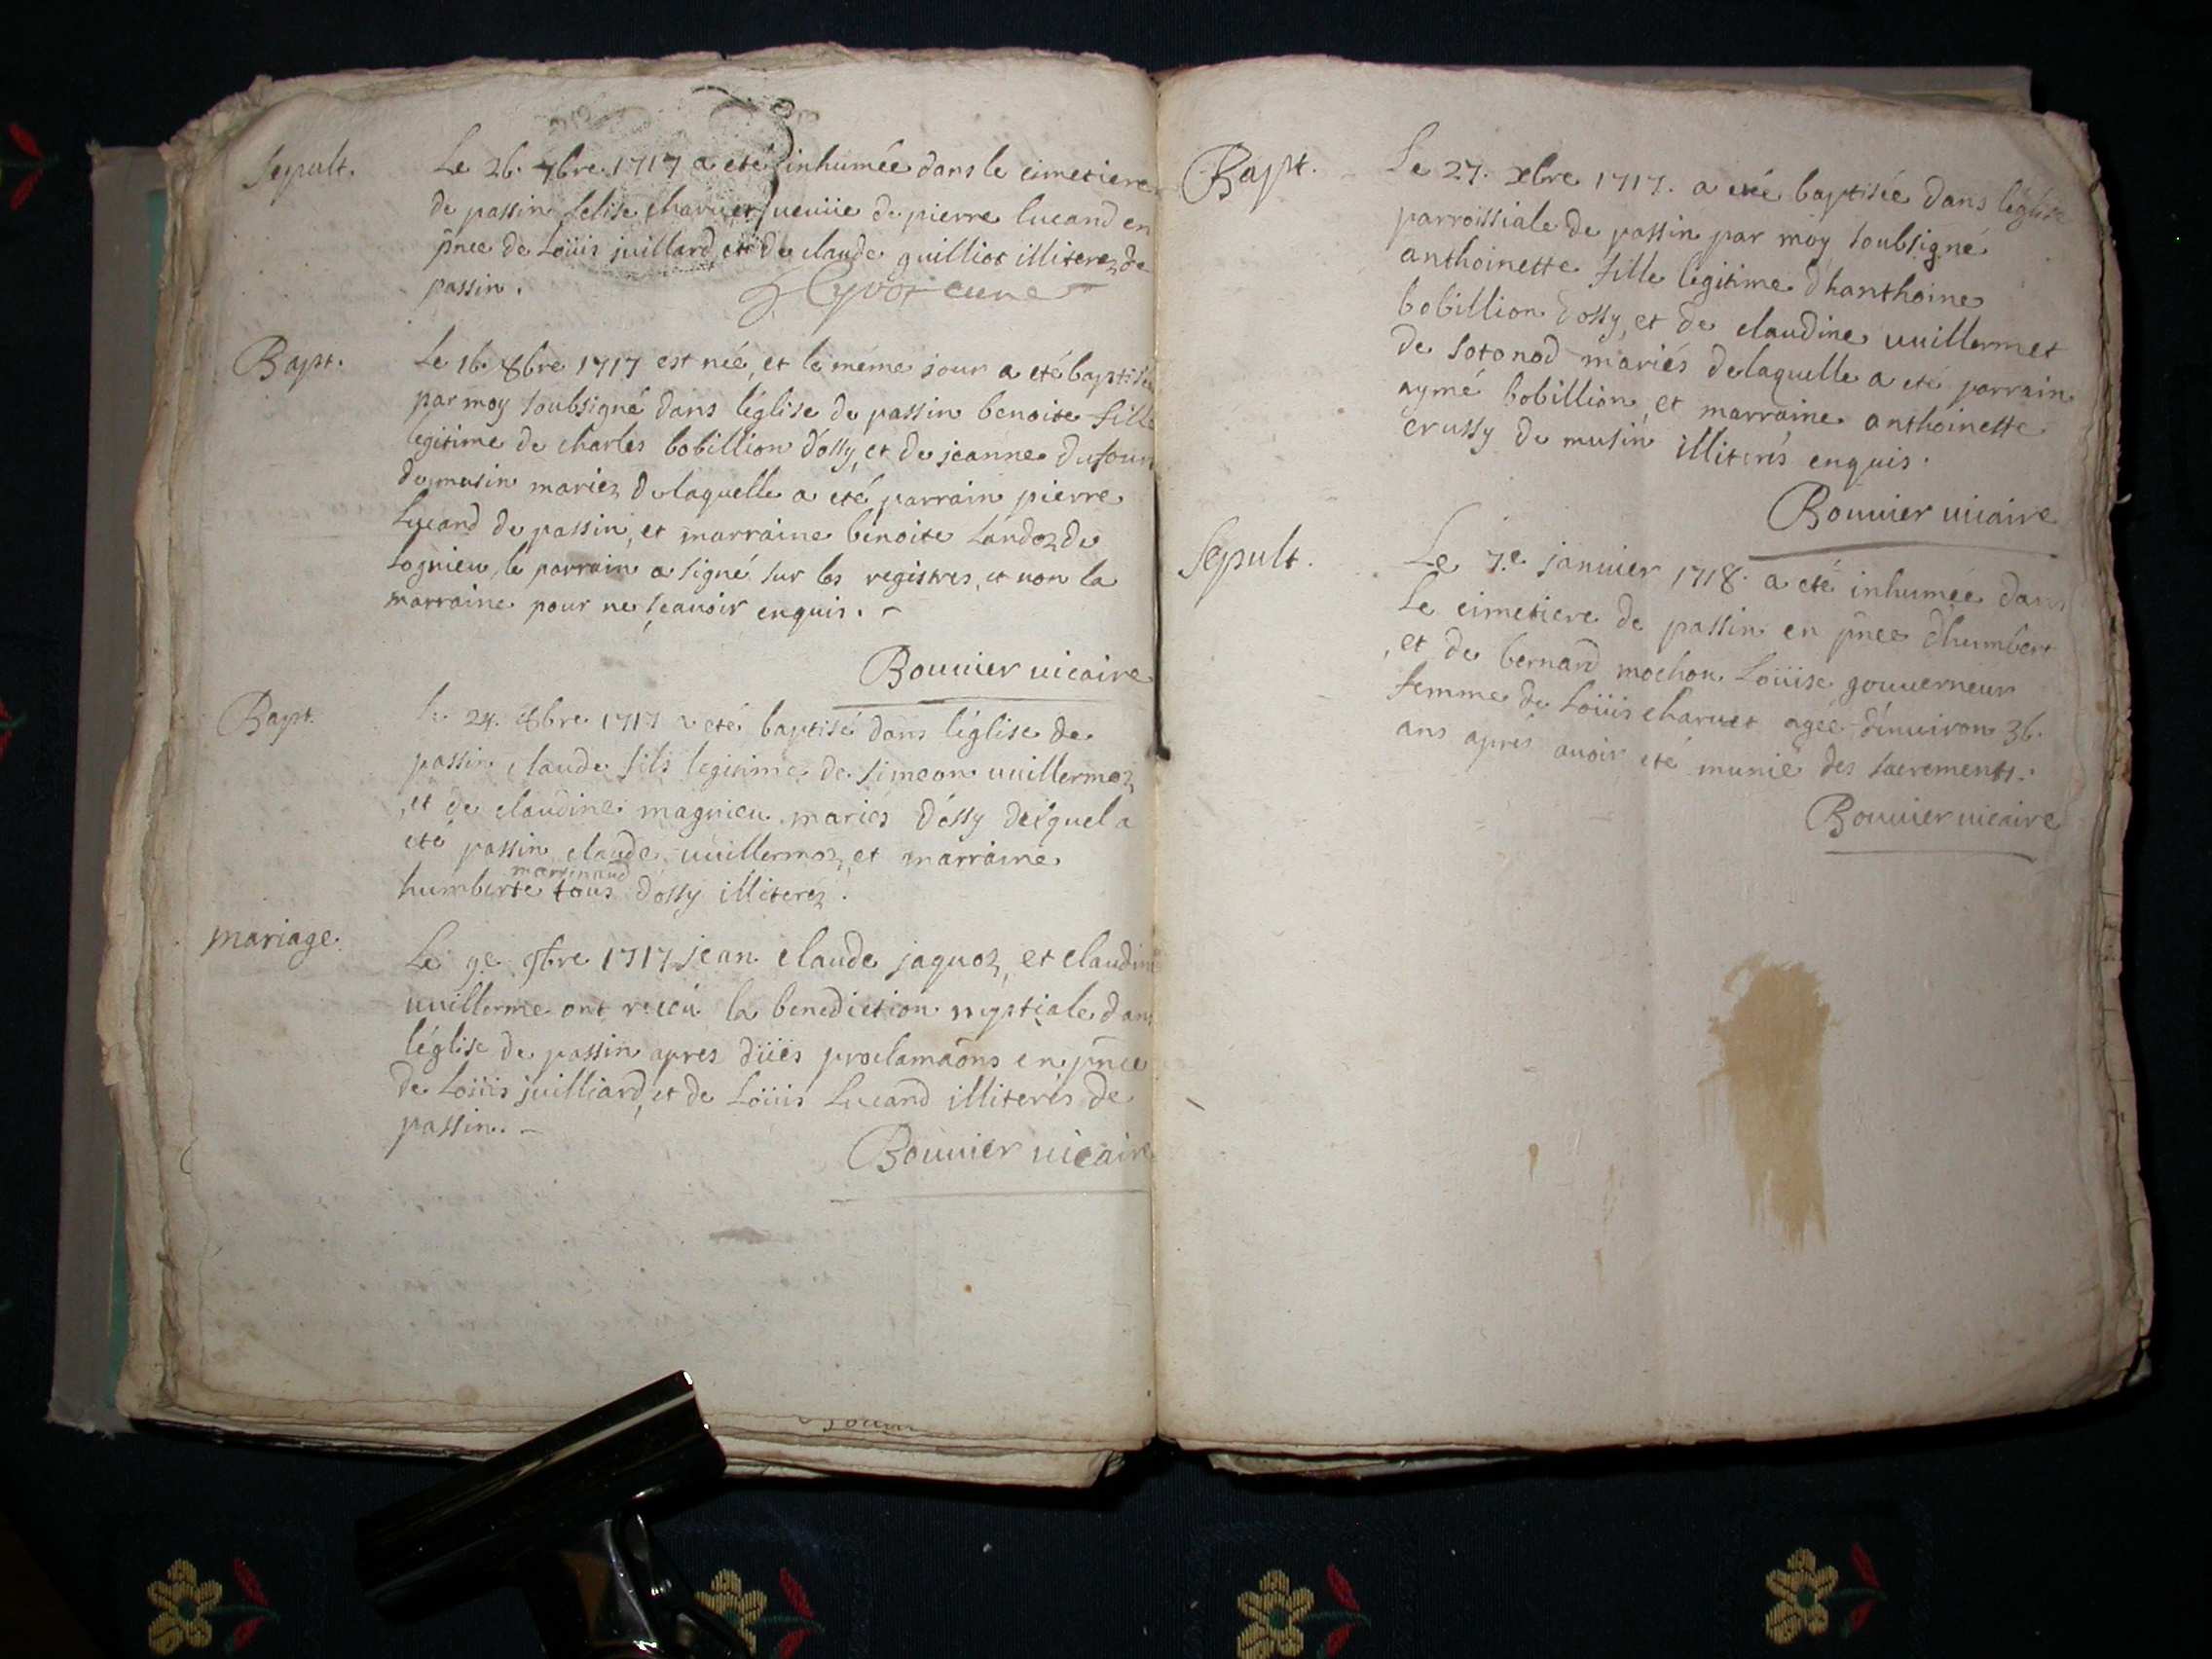 Sepult.
Le 26. 7bre 1717 a eté inhumée dans le cimetiere
de passin felise charuet ueuüe de pierre lucand en
pnce de Loüis juillard, et de claude guilliot illiterez de
passin.
curé
Bapt.
Le 16. 8bre 1717 est née, et le méme jour a eté baptisée
par moy soubsigné dans léglise de passin benoite fille
legitime de charles bobillion dóssy, et de jeanne dufour
de musin mariez delaquelle a eté parrain pierre
Lucand de passin, et marraine benoite Landoz de
Lognieu, le parrain a signé sur les registres, et non la
marraine pour ne sçauoir enquis.
Bouuier uicaire
Bapt.
Le 24. 8bre 1717 a eté baptisé dans léglise de
passin claude fils legitime de simeon uuillermoz,
et de claudine magnieu mariés dóssy desquel a
eté passin claude uuillermoz, et marraine
marrinaud
humberte tous dóssy illiterez.
mariage.
Le 9e. 9bre 1717 jean claude jaquoz, et claudine
uuillerme ont reçeu la benediction nuptiale dans
léglise de passin apres düës proclamaons en pnce
de Loüis juilliard, et de Loüis Lucand illiterés de
passin.
Bouuier uicaire
Bapt.
Le 27. xbre 1717. a eté baptisée dans léglise
parroissiale de passin par moy soubsigné
anthoinette fille legitime dhanthoine
bobillion dossy, et de claudine uuillermet
de sotonod mariés delaquelle a eté parrain
aymé bobillion, et marraine anthoinette
crussy de musin illiterés enquis.
Bouuier uicaire
Sepult.
Le 7.e januier 1718. a eté inhumée dans
Le cimetiere de passin en pnce dhumbert
, et de bernard mochon Loüise gouuerneur
femme de Loüis charuet agée dénuiron 36.
ans aprés auoir eté munie des sacrements.
Bouuier uicaire